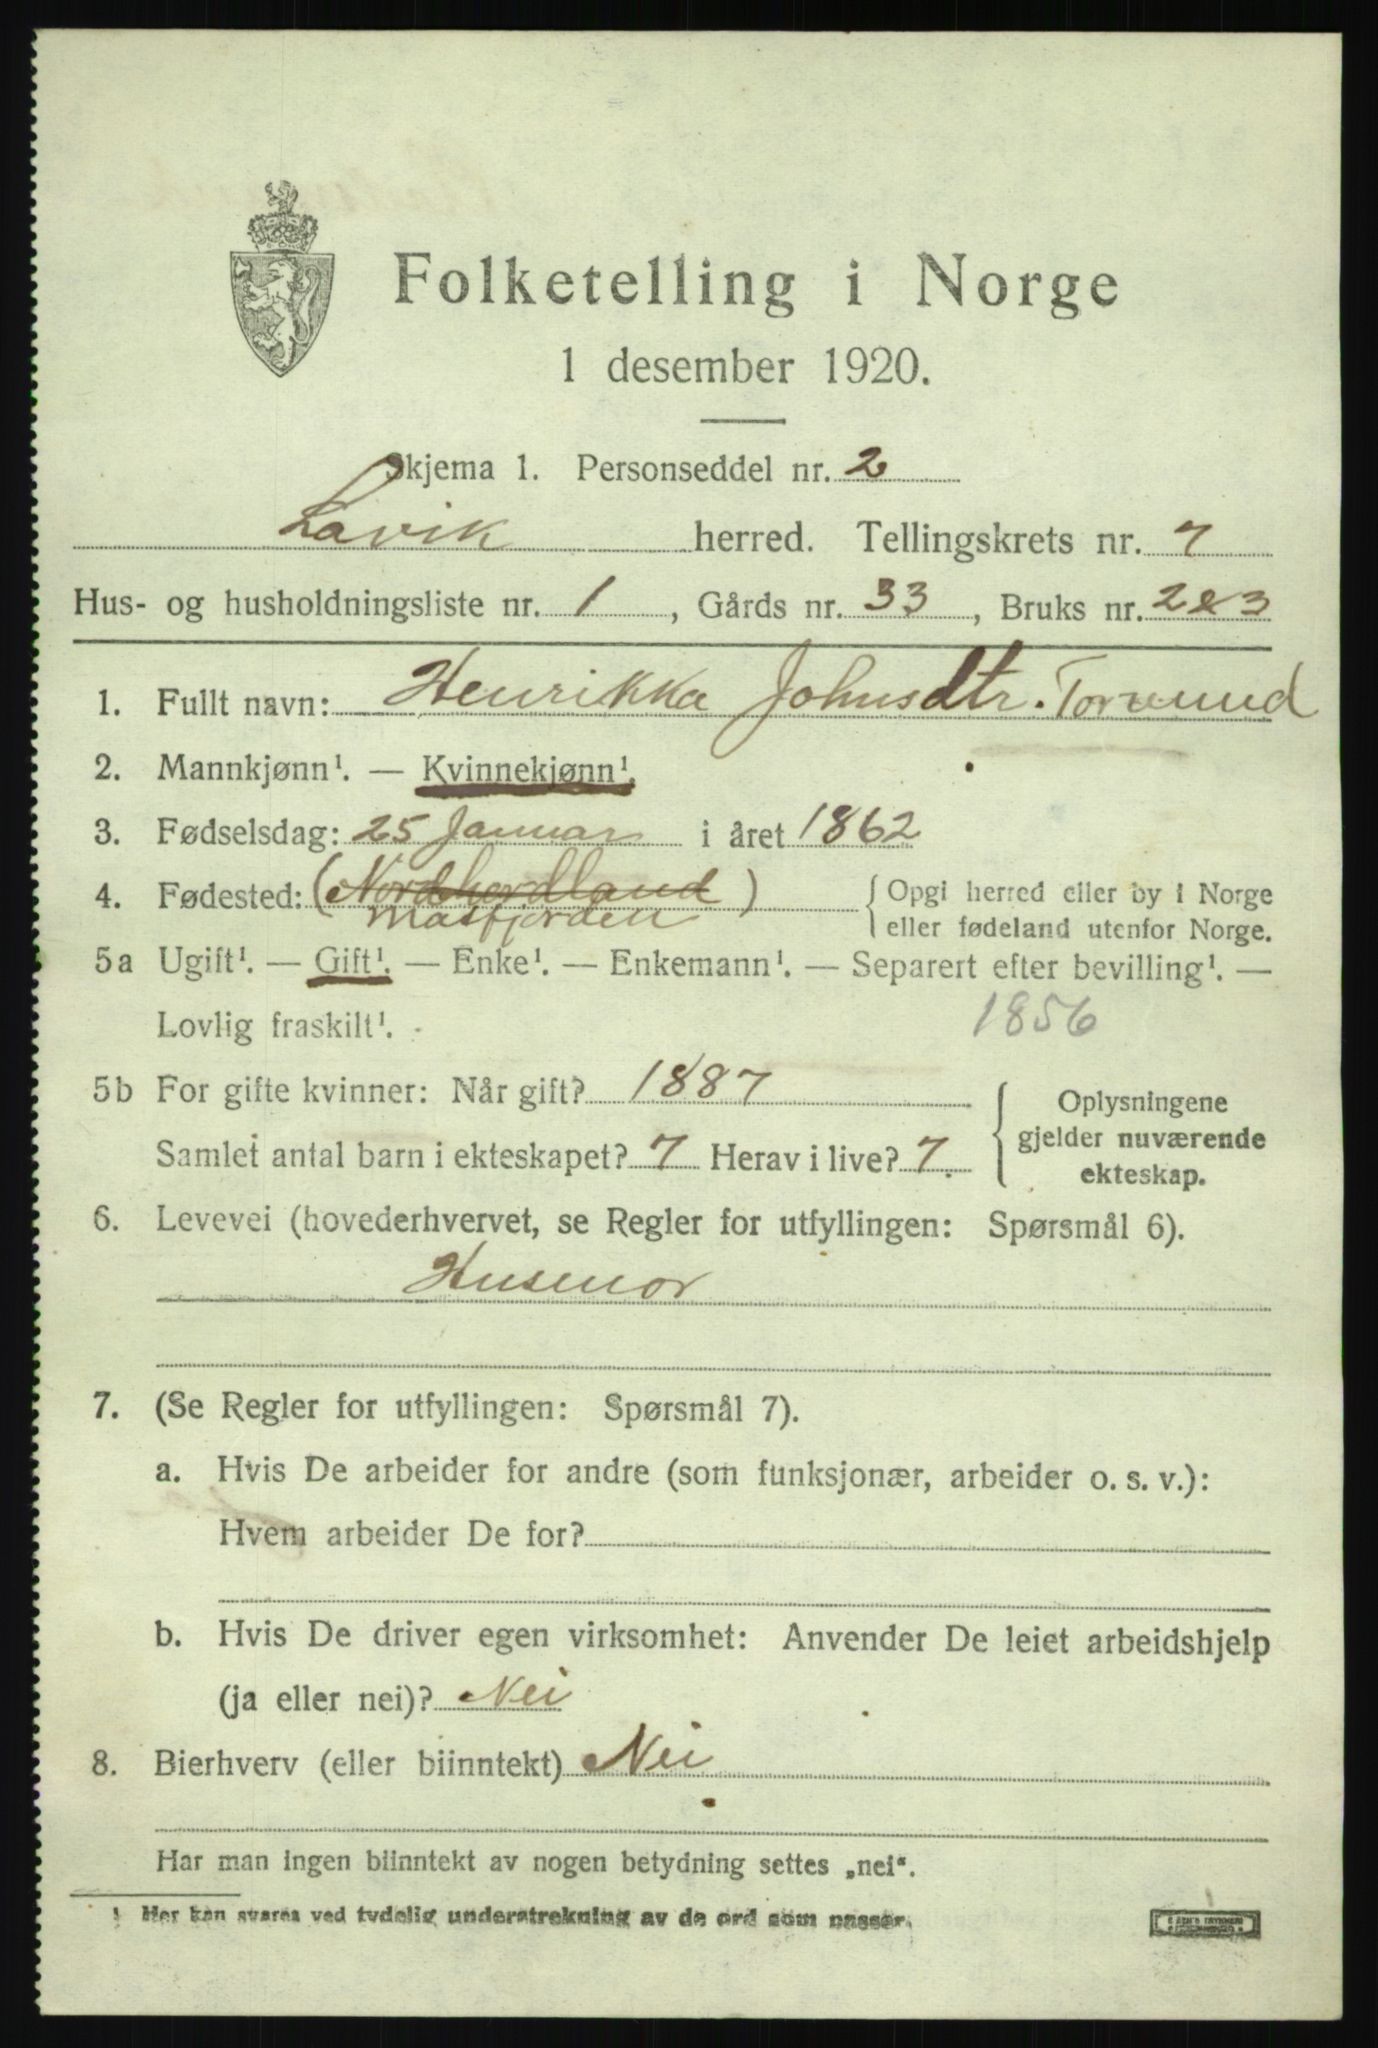 Folketelling i Norge
1 desember 1920.
Skjema 1. Personseddel nr. 2
Lavik herred. Tellingskrets nr. 7
Hus- og husholdningsliste nr. 1, Gårds nr. 33, Bruks nr. 2&3
1. Fullt navn: Henrikka Johnsdtr. Torsund
2. Mannkjønn¹. — Kvinnekjønn¹.
3. Fødselsdag: 25 Januar i året 1862
4. Fødested: (Nordhordland) { Opgi herred eller by i Norge
Masfjorden eller fødeland utenfor Norge.
5a Ugift¹. — Gift¹. — Enke¹. — Enkemann¹. — Separert efter bevilling¹. —
Lovlig fraskilt¹. 1856
5b For gifte kvinner: Når gift? 1887 { Oplysningene
gjelder nuværende
Samlet antal barn i ekteskapet? 7 Herav i live? 7. ekteskap.
6. Levevei (hovederhvervet, se Regler for utfyllingen: Spørsmål 6).
Husmor
7. (Se Regler for utfyllingen: Spørsmål 7).
a. Hvis De arbeider for andre (som funksjonær, arbeider o. s. v.):
Hvem arbeider De for?
b. Hvis De driver egen virksomhet: Anvender De leiet arbeidshjelp
(ja eller nei)? Nei
8. Bierhverv (eller biinntekt) Nei
Har man ingen biinntekt av nogen betydning settes „nei“.
¹ Her kan svares ved tydelig understrekning av de ord som passer.